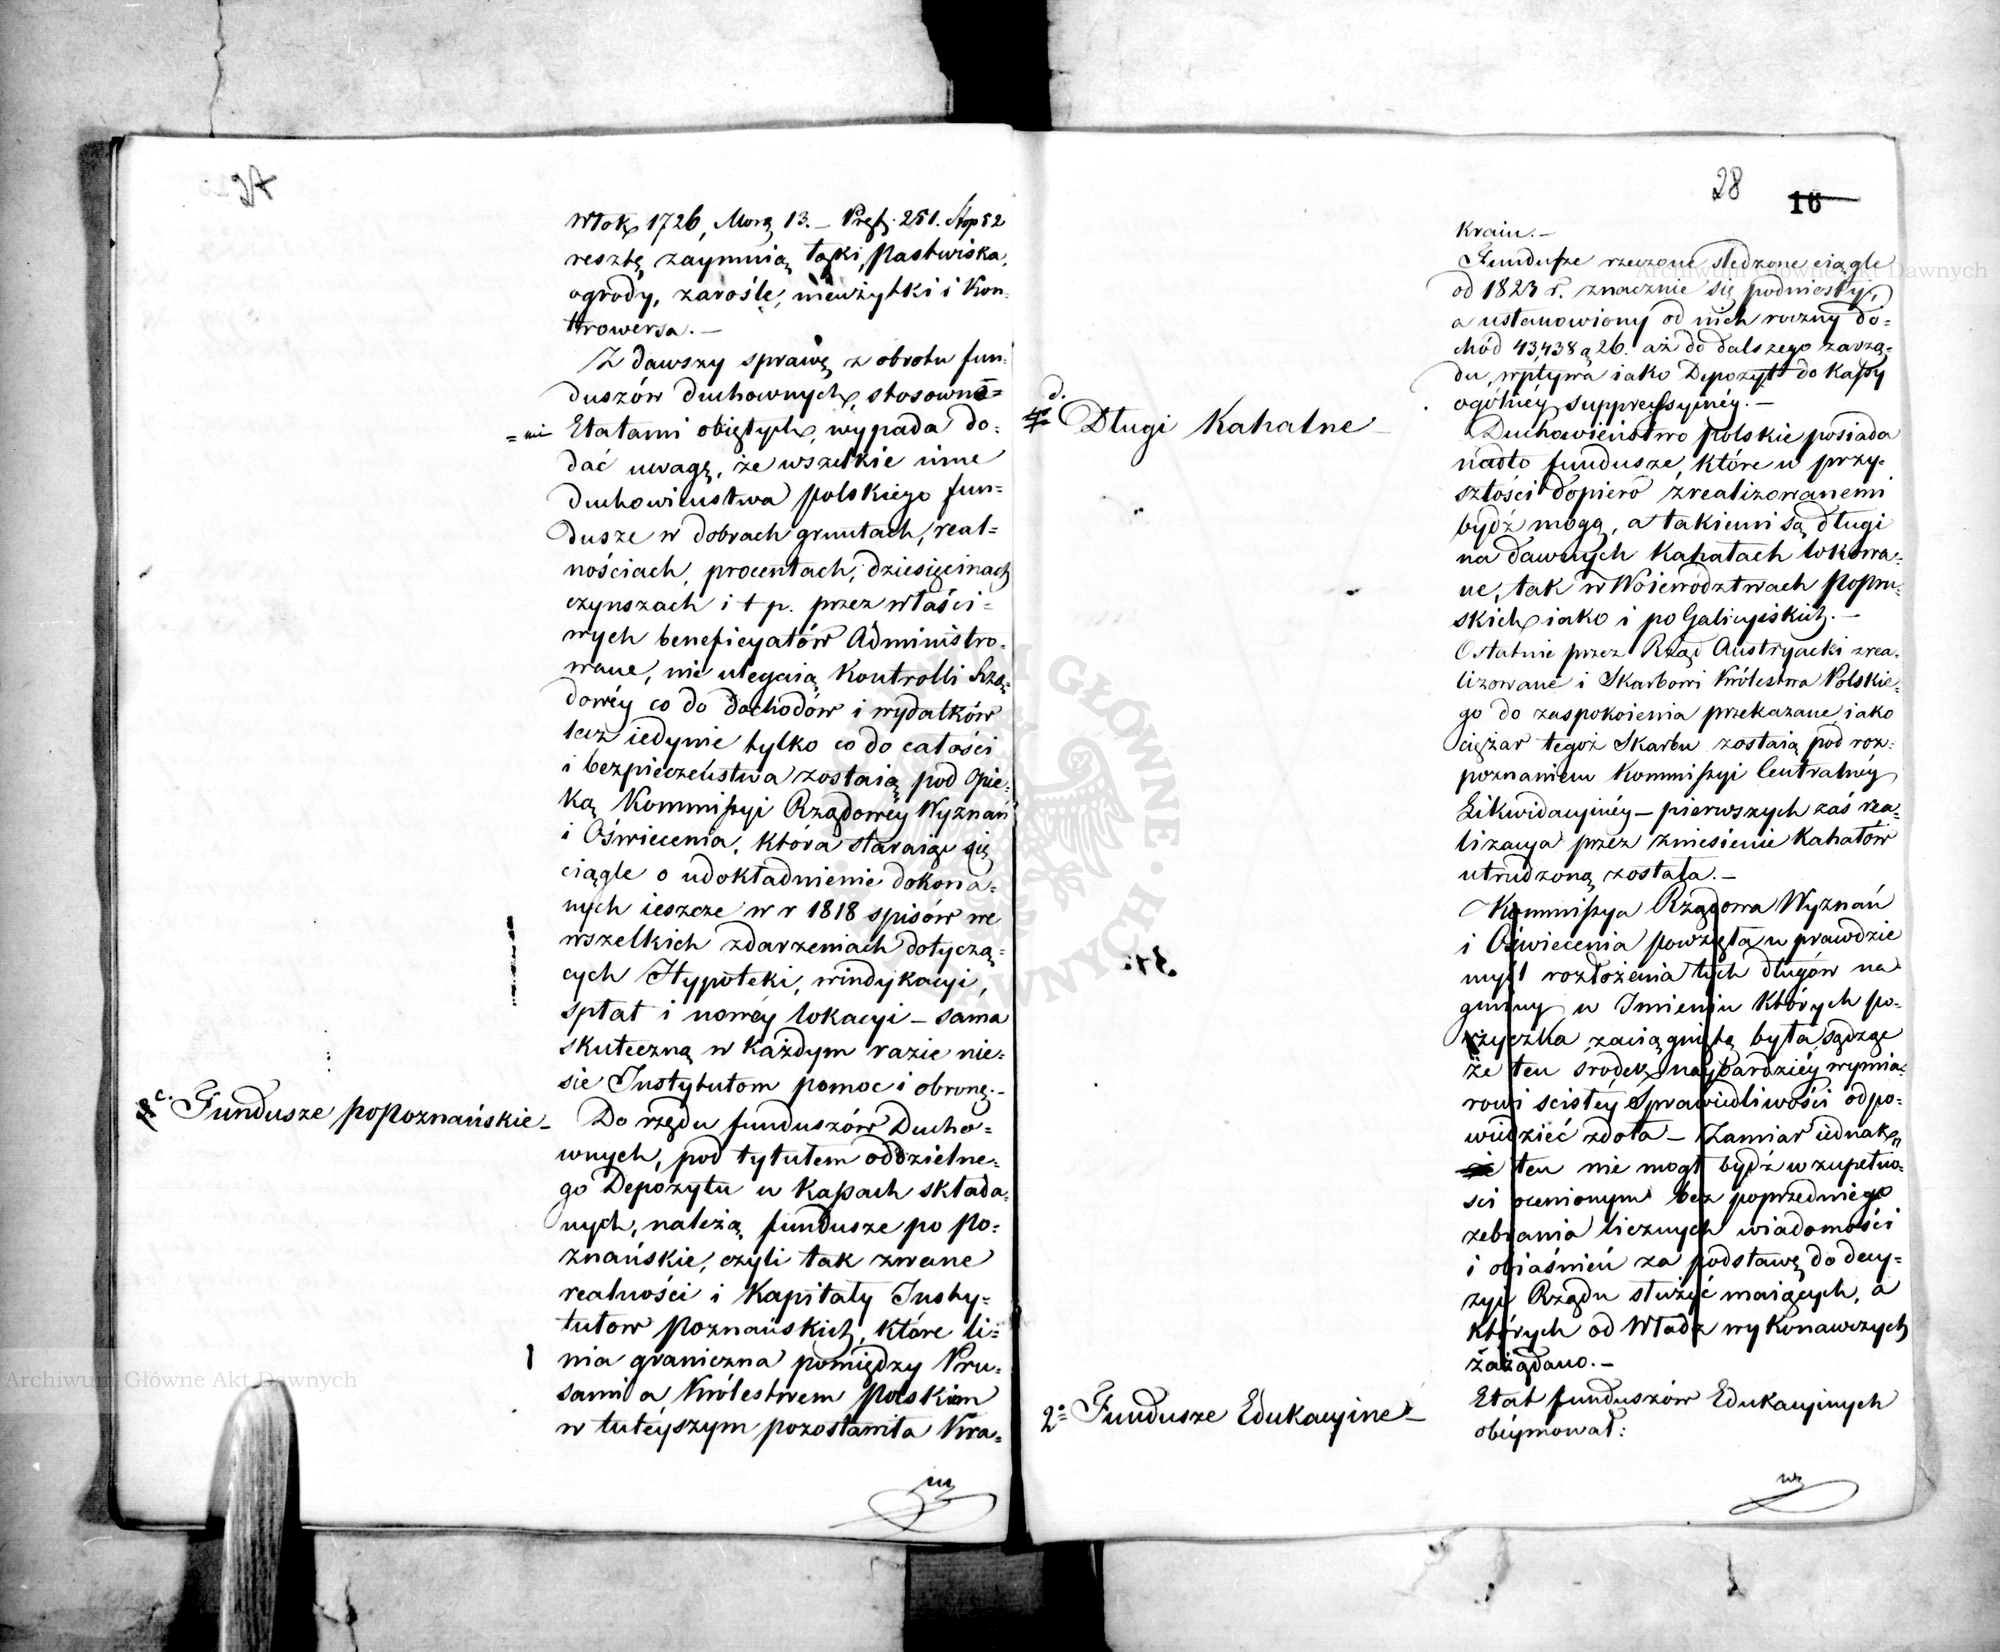 27
Włok 1726, Morg 13. – Pręt. 251. Stop 52
resztę zaymuią łąki, Pastwiska,
ogrody, zarośle, nieużytki i Kon-
trowersa. –
Zdawszy sprawę z obrotu fun-
duszów duchownych, stosowne=
=mi Etatami obiętych, wypada do-
dać uwagę, że wszelkie inne
duchowieństwa polskiego fun-
dusze w dobrach gruntach, real-
nościach, procentach, dziesięcinach
czynszach i t p. przez właści-
wych beneficyatów Administro-
wane, nie ulegaią Kontrolli Rzą-
dowéy co do dochodów i wydatków
lecz iedynie tylko co do całości
i bezpieczeństwa zostaią pod Opie-
ką Kommissyi Rządowéy Wyznań
i Oświecenia, która staraiąc się
ciągle o udokładnienie dokona-
nych ieszcze w r 1818 spisów we
wszelkich zdarzeniach dotyczą-
cych Hypoteki, windykacyi,
spłat i nowéy lokacyi – sama
skuteczną w każdym razie nie-
sie Instytutom pomoc i obronę. –
c. Fundusze popoznańskie –
Do rzędu funduszów Ducho-
wnych, pod tytułem oddzielne-
go Depozytu w Kassach składa-
nych, należą fundusze po Po-
znańskie, czyli tak zwane
realności i Kapitały Insty-
tutów Poznańskich, które li-
nia graniczna pomiędzy Pru-
sami a Królestwem Polskiem
w tutéyszym pozostawiła Kra-
28
16
Kraiu. –
Fundusze rzeczone śledzone ciągle
od 1823 r. znacznie się podniosły,
a ustanowiony od nich roczny do-
chód 43,438 g 26. aż do dalszego zarzą-
du, wpływa iako Depozyt do Kassy
ogólnéy suppressyinéy. –
d. Długi Kahalne –
Duchowieństwo Polskie posiada
nadto fundusze, które w przy-
szłości dopiero zrealizowanemi
bydź mogą, a takiemi są długi
na dawnych Kahałach lokowa-
ne, tak w Woiewództwach Popru-
skich iako i po Galicyiskich. –
Ostatnie przez Rząd Austryacki zrea-
lizowane i Skarbowi Królestwa Polskie-
go do zaspokoienia przekazane iako
ciężar tegoż Skarbu zostaią pod roz-
poznaniem Kommissyi Centralnéy
Likwidacyinéy – pierwszych zaś rea-
lizacya przez zniesienie Kahałów
utrudzoną została. –
Kommissya Rządowa Wyznań
i Oświecenia powzięła w prawdzie
myśl rozłożenia tych długów na
gminy w Imieniu których po-
życzka zaciągniętą była, sądząc
że ten środek naybardziéy wymia-
rowi scisłéy Sprawiedliwości odpo-
wiedzieć zdoła – Zamiar iednak
ten nie mogł bydź w zupełno-
sci ocenionym bez poprzedniego
zebrania licznych wiadomości
i obiaśnień za podstawę do decy-
zyi Rządu służyć maiących, a
których od Władz wykonawczych
zażądano. –
2º Fundusze Edukacyine –
Etat funduszów Edukacyinych
obéymował:
Archiwum Główne Akt Dawnych
Archiwum Główne Akt Dawnych